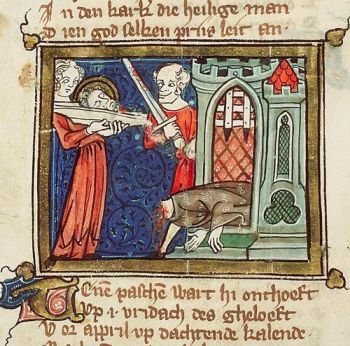 In den kark die heilige man
Dien god selken priis leit an.
Tene paschen wart hi onthoeft
Up i vridach des gheloeft
Vor april vp dachtende kalende